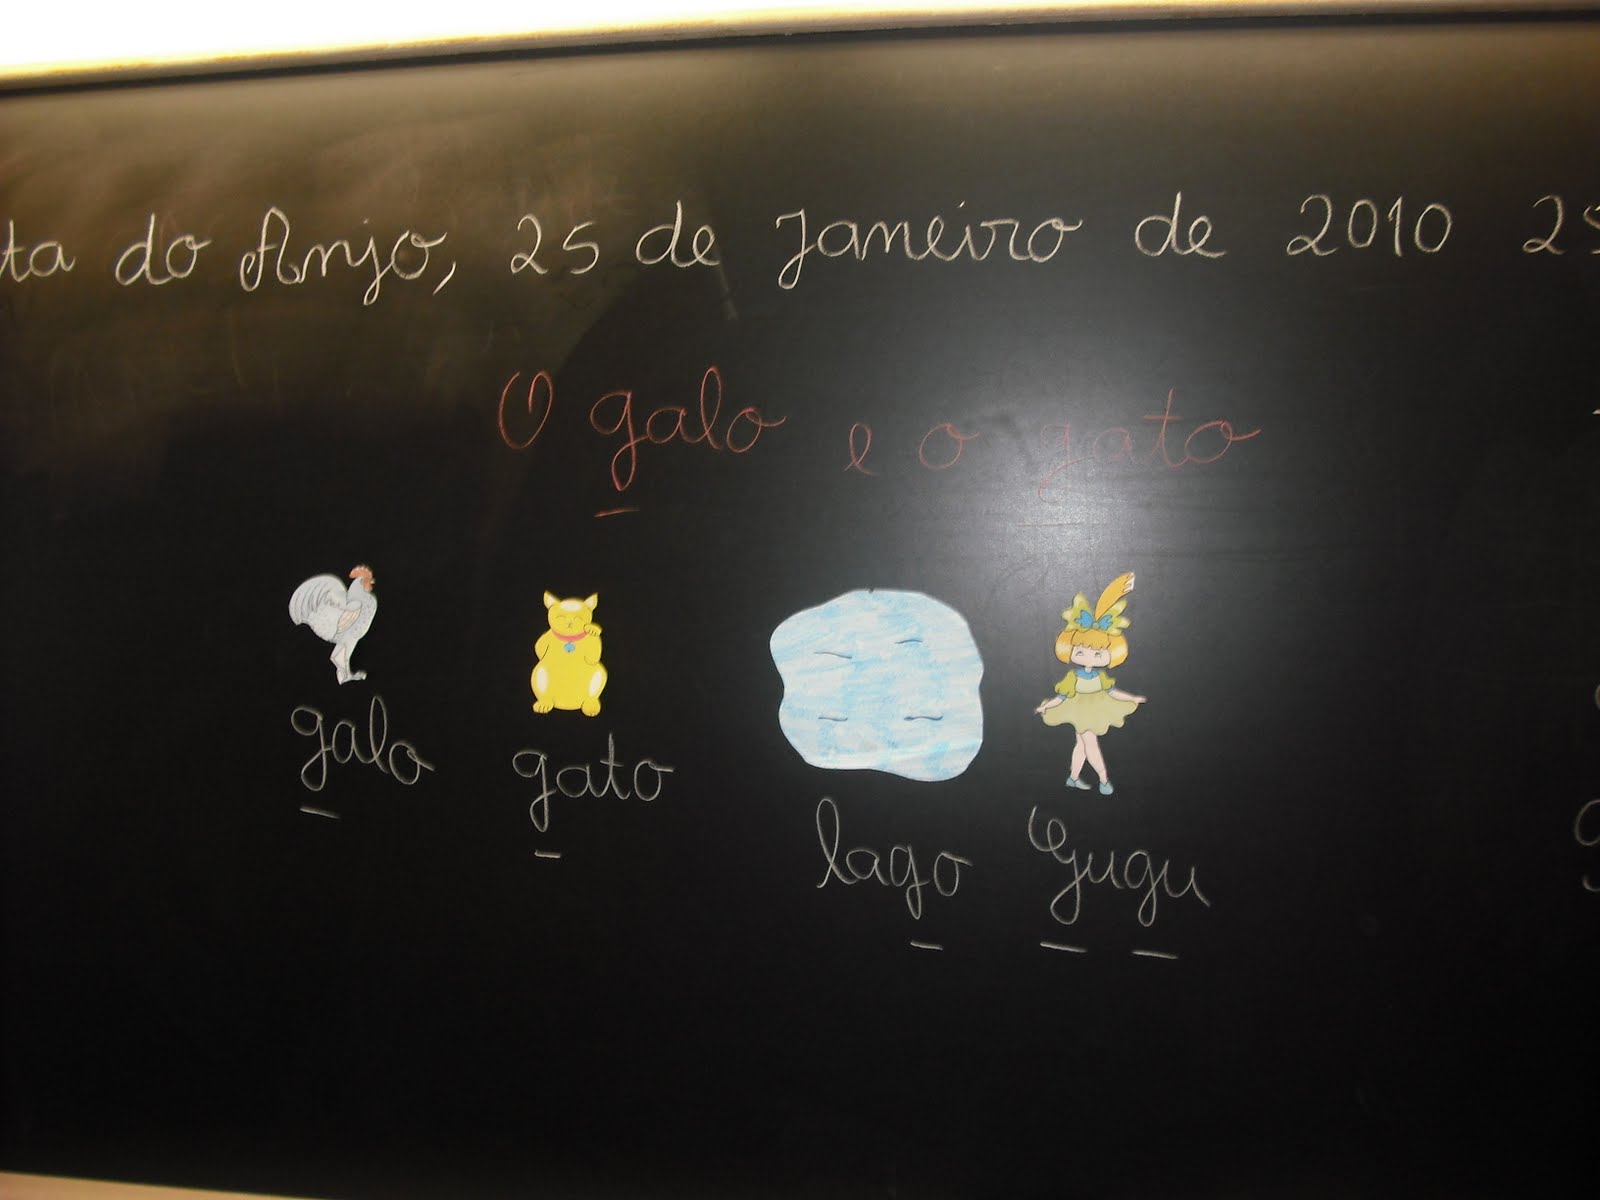 ta do Anjo, 25 de Janeiro de 2010
O galo e o gato
galo gato lago Gugu